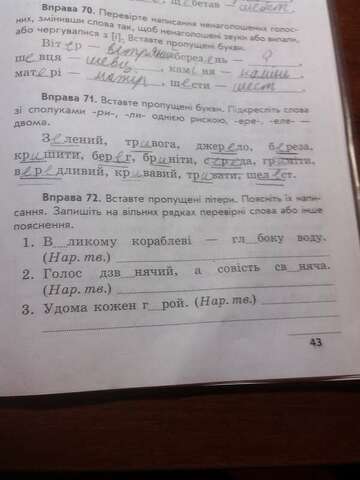 Вправа 70. Перевірте написання ненаголошених голос-
них, змінивши слова так, щоб ненаголошені звуки або випали,
або чергувалися з [і]. Вставте пропущені букви.
Віт е р — вітряний беред ень —
ше вця — швець, кам і ня —
мат е рі — матір, ще сти — шест
Вправа 71. Вставте пропущені букви. Підкресліть слова
зі сполуками -ри-, -ли- однією рискою, -ере-, -еле- —
двома.
Зелений, тривога, джерело, береза,
кришити, берег, бриніти, середа, гриміти,
вередливий, кривавий, тривати, шелест.
Вправа 72. Вставте пропущені літери. Поясніть їх напи-
сання. Запишіть на вільних рядках перевірні слова або інше
пояснення.
1. В_ликому кораблеві — гл_боку воду.
(Нар. тв.)
2. Голос дзв_нячий, а совість св_няча.
(Нар. тв.)
3. Удома кожен г_рой. (Нар. тв.)
43